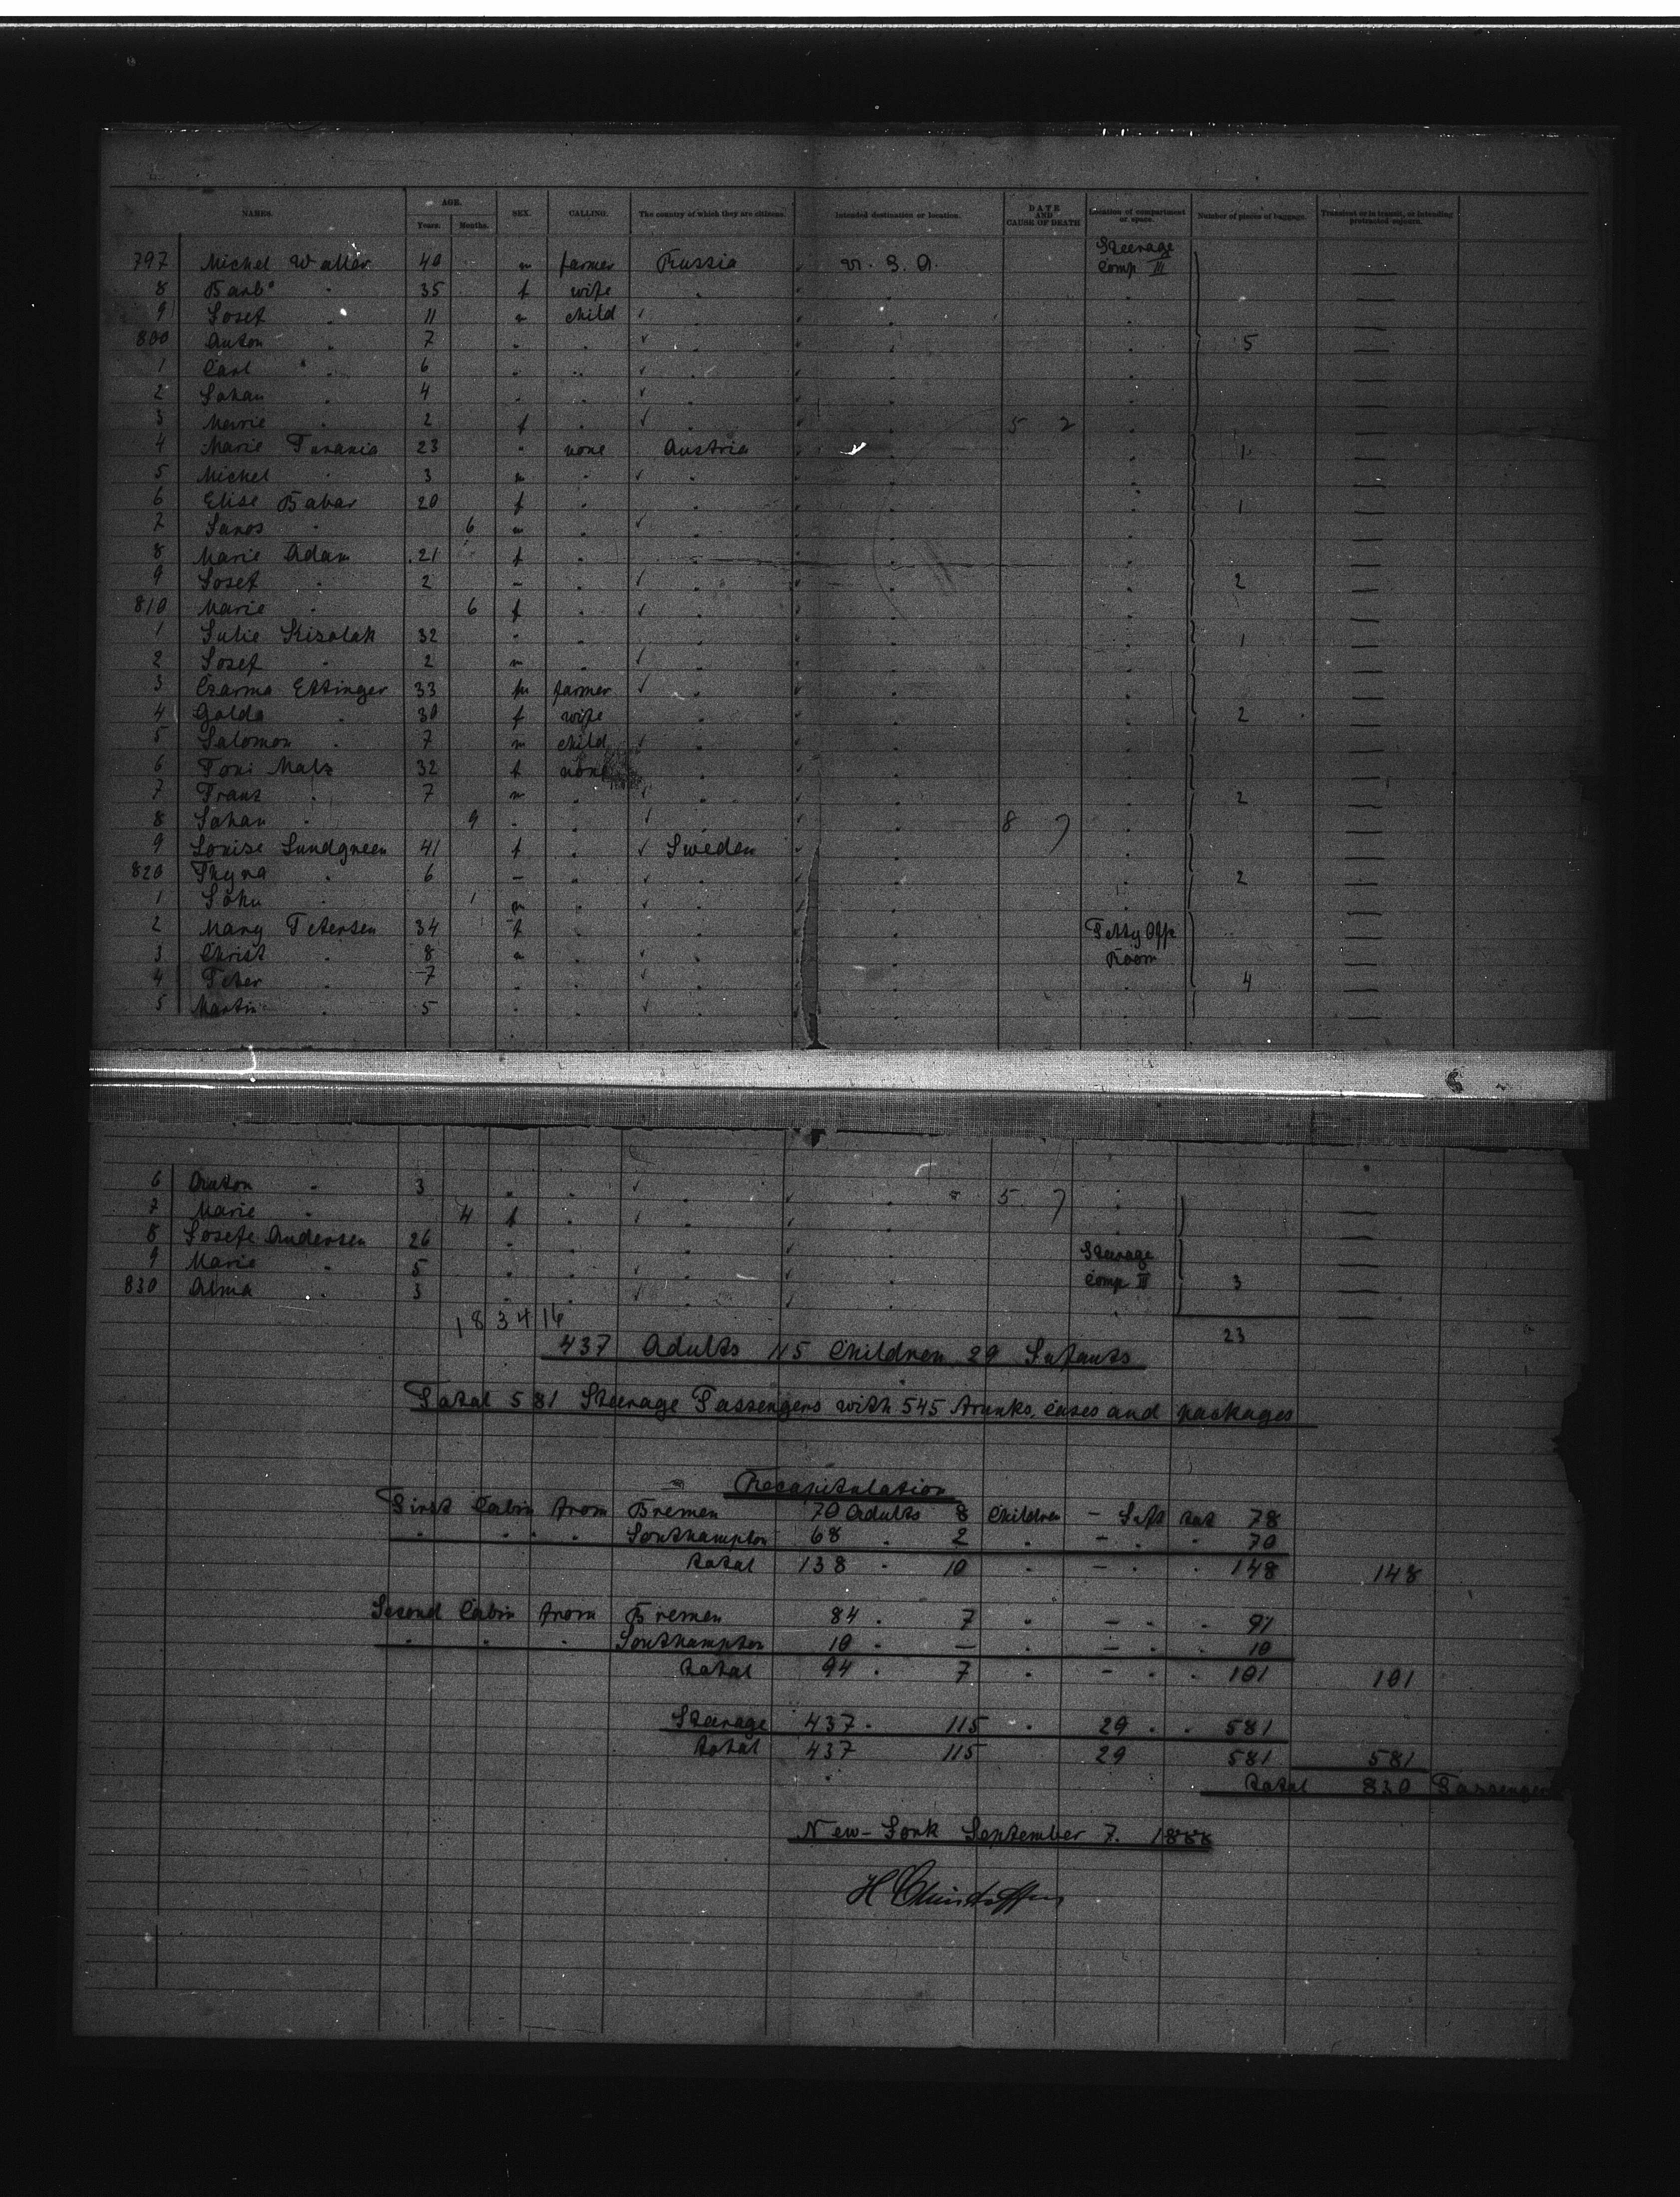 NAMES. AGE. Years. Months. SEX. CALLING. The country of which they are citizens. Intended destination or location. DATE AND CAUSE OF DEATH Location of compartment or space. Number of pieces of baggage. Transient or in transit, or intending protracted sojourn.
797 Michel Waller 40 m farmer Russia U. S. A. Steerage Comp III
8 Barba " 35 f wife " "
9 Josef " 11 m child " "
800 Anton " 7 " " " " " 5
1 Carl " 6 " " " "
2 Johan " 4 " " " "
3 Marie " 2 f " " " 5 2
4 Marie 23 " none Austria 1
5 Michel " 3 m " " "
6 Elise Babar 20 f " " " 1
7 Janos " 6 m " " "
8 Marie Adam 21 f " " "
9 Josef " 2 – " " " 2
810 Marie " 6 f " " "
1 Julie 32 " " " " 1
2 Josef " 2 m " " "
3 Czarma Ettinger 33 m farmer " "
4 Golda " 30 f wife " " 2
5 Salomon " 7 m child " "
6 Toni Malz 32 f none " "
7 Franz " 7 m " " " 2
8 Johan " 9 " " " " 8 7
9 Louise Lundgreen 41 f " Sweden "
820 Thyra " 6 – " " " 2
1 John " 1 m " " "
2 Mary Petersen 34 f " " " Petty Off
3 Christ " 8 m " " " Room
4 Peter " 7 " " " " 4
5 Martin " 5 " " " "
6 Anton " 3 " " " " 5 7
7 Marie " 4 f " " "
8 Josefe Andersen 26 " " " " Steerage
9 Marie " 5 " " " " Comp III 3
830 Alma " 3 " " " "
18 34 16 23
437 Adults 115 Children 29 Infants
Total 581 Steerage Passengers with 545 trunks, cases and packages
Recapitulation
First Cabin from Bremen 70 Adults 8 Children – Inft tot 78
" " " Southampton 68 " 2 " – " " 70
total 138 " 10 " – " " 148 148
Second Cabin from Bremen 84 " 7 " – " " 91
" " " Southampton 10 " – – " 10
total 94 " 7 " – " " 101 101
Steerage 437 " 115 " 29 " " 581
total 437 115 29 581 581
total 830 Passengers
New-York September 7. 1888
H Christoffers